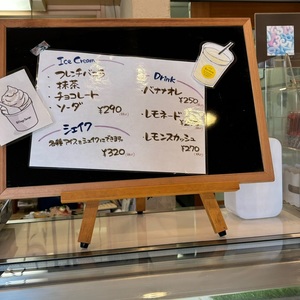 Ice Cream
・フレンチバニラ
・抹茶
・チョコレート
・ソーダ ¥290
シェイク
各種アイスをシェイクにできます。
¥320
Drink
・バナナオレ
¥250
・レモネード
・レモンスカッシュ
¥270